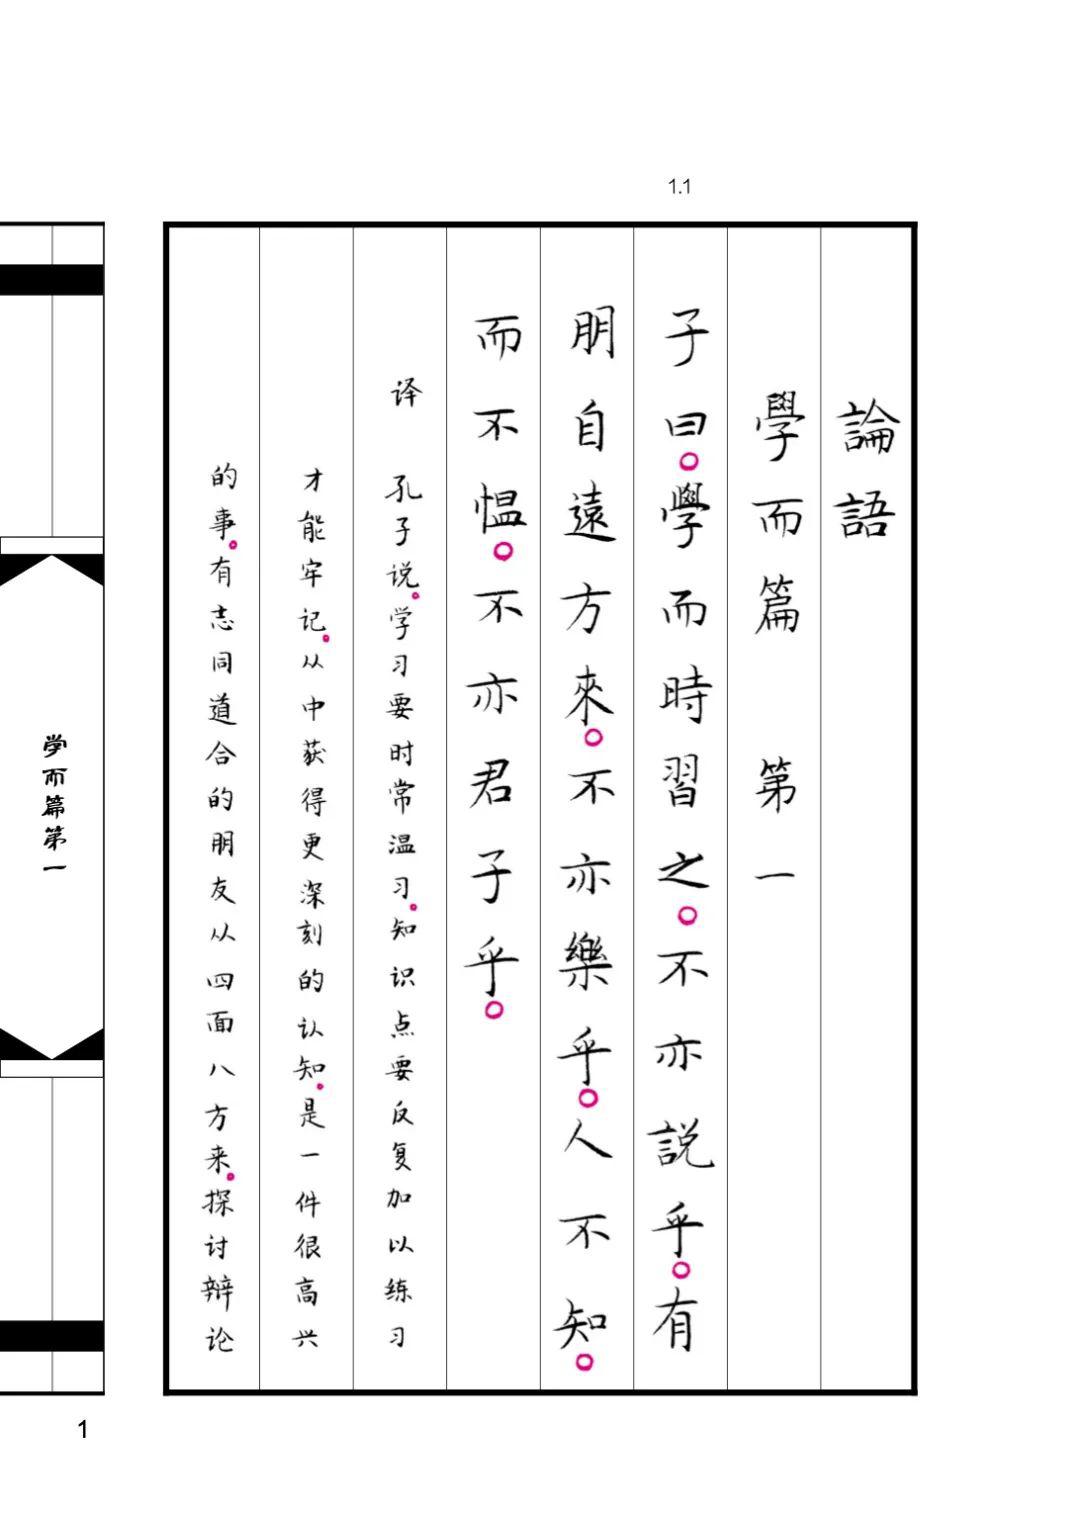 1.1
論語
學而篇 第一
子曰。學而時習之。不亦説乎。有
朋自遠方來。不亦樂乎。人不知。
而不愠。不亦君子乎。
译 孔子说。学习要时常温习。知识点要反复加以练习
才能牢记。从中获得更深刻的认知。是一件很高兴
的事。有志同道合的朋友从四面八方来。探讨辩论
学而篇第一
1